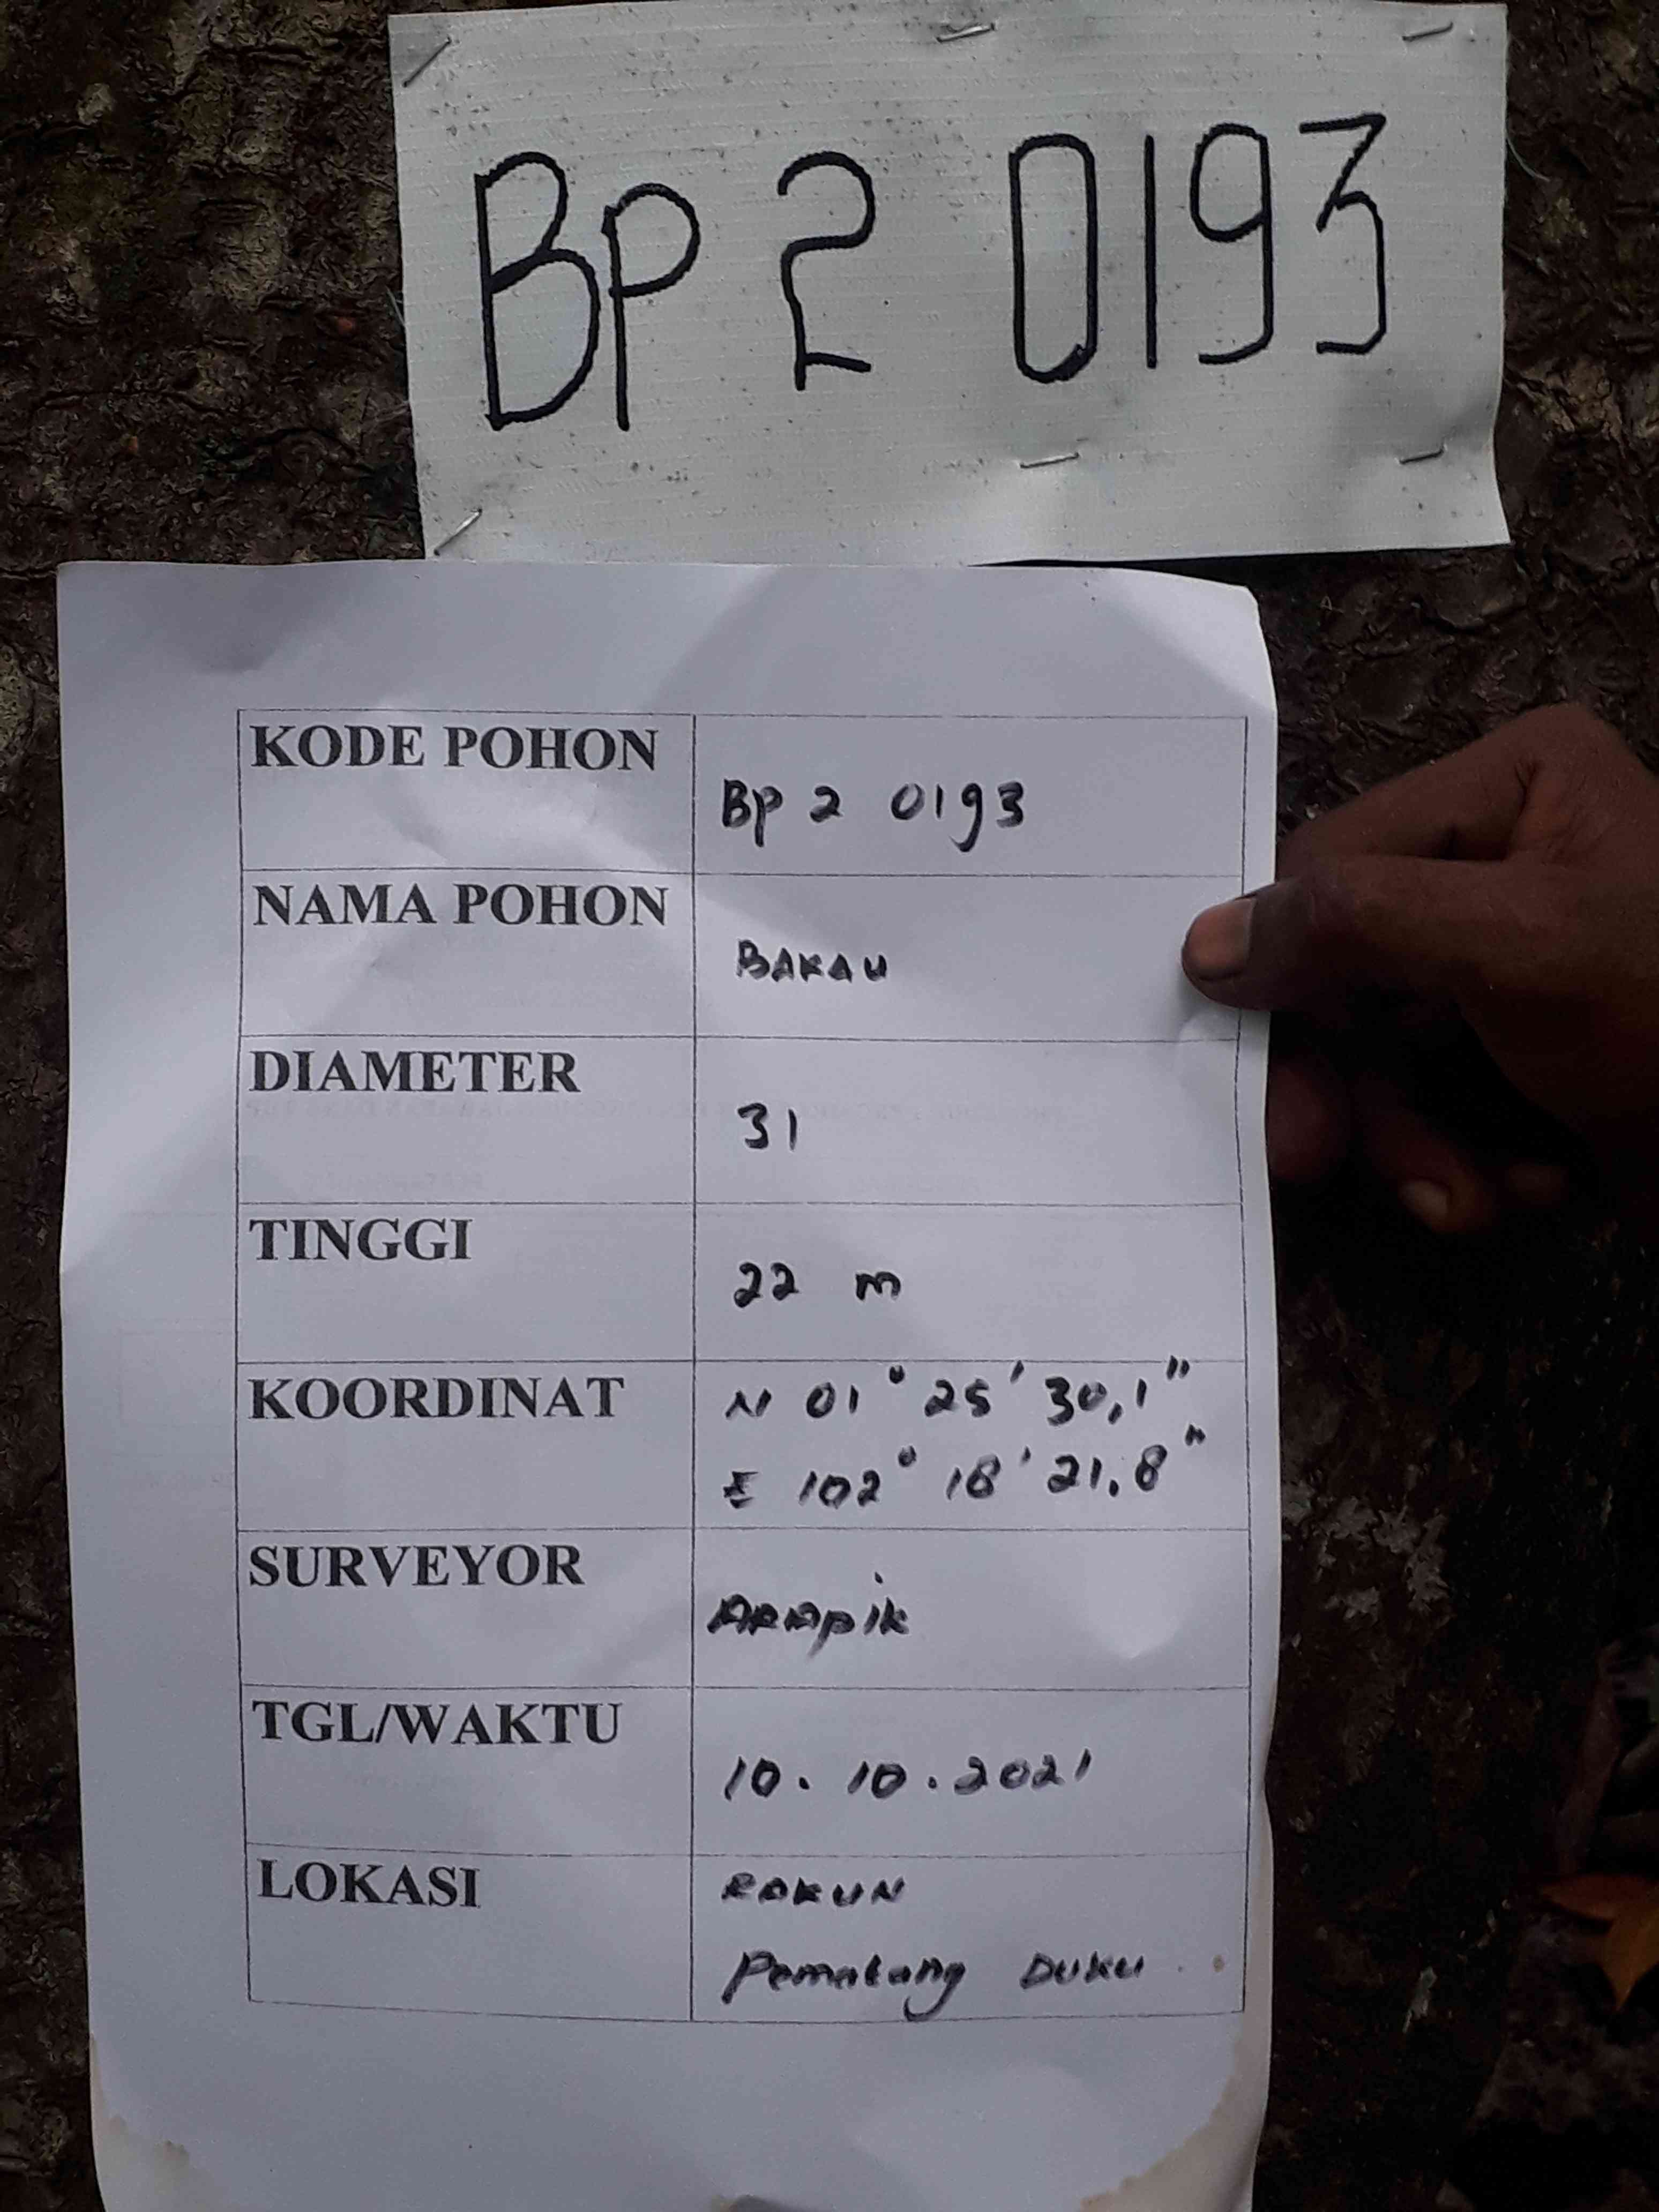 BP 2 0193
KODE POHON
Bp 2 0193
NAMA POHON
BAKAU
DIAMETER
31
TINGGI
22 m
KOORDINAT
N 01° 25' 30,1"
E 102° 18' 21.8"
SURVEYOR
ARApik
TGL/WAKTU
10. 10. 2021
LOKASI
RAKUN
Pematang DUKU